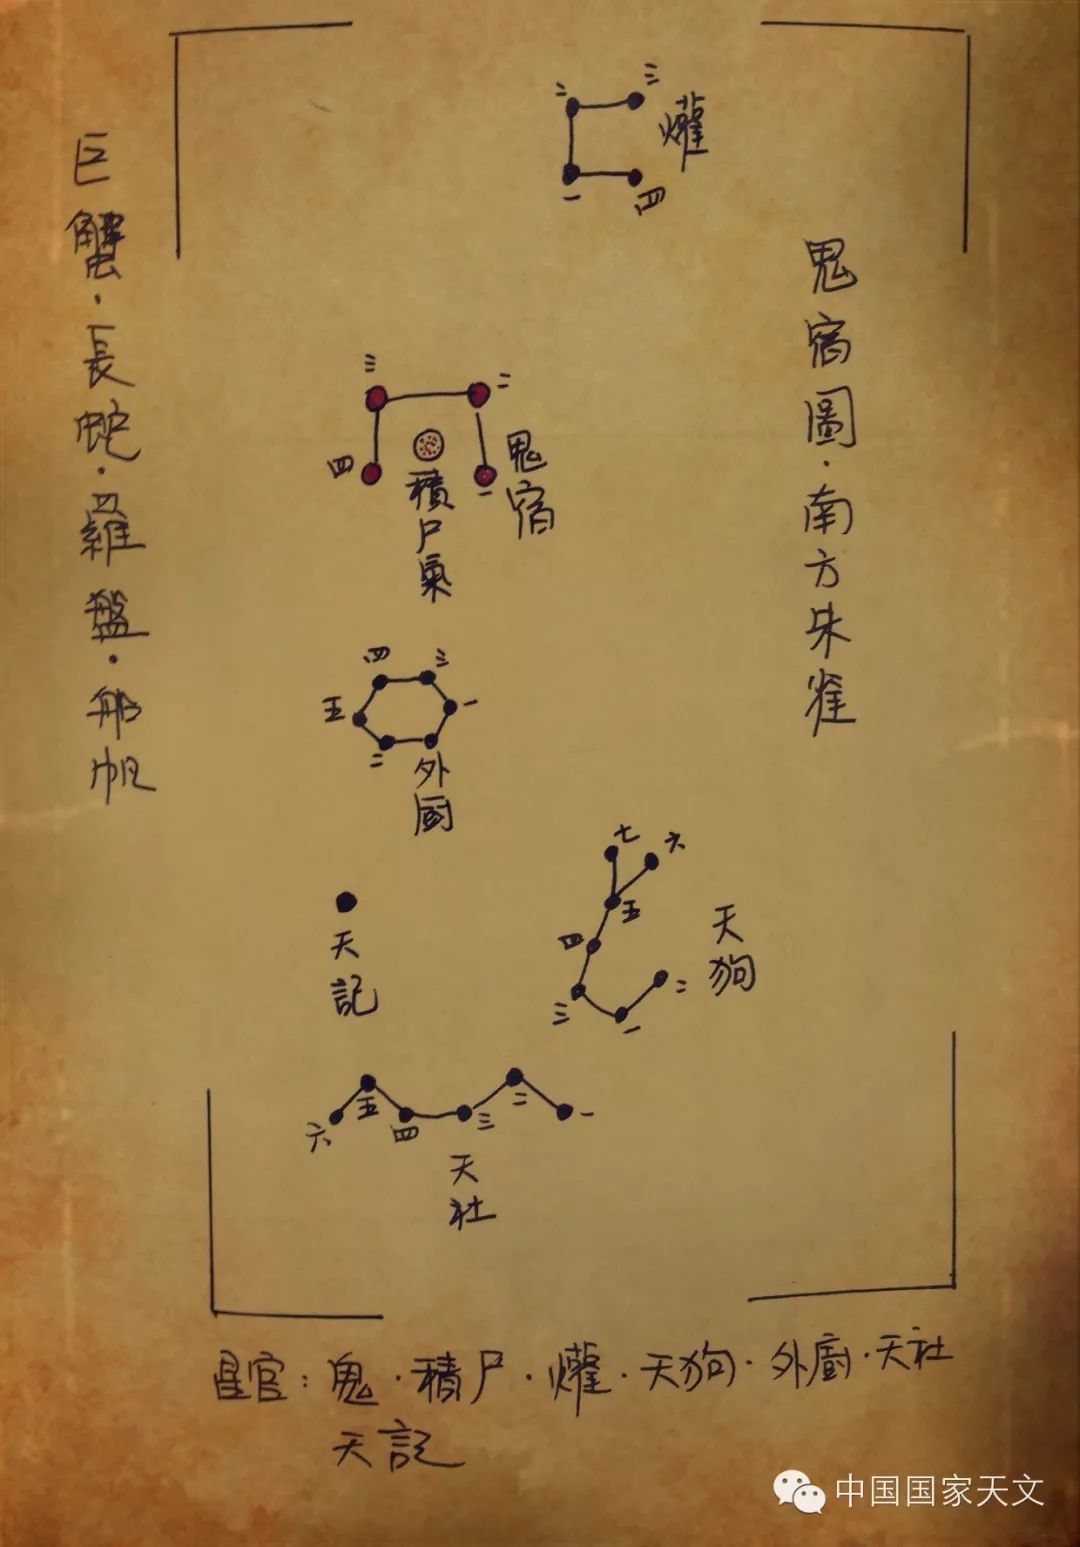 鬼宿圖·南方朱雀
巨蟹·長蛇·羅盤·船帆
二
三
爟
一
四
三
二
四
一
鬼宿
積尸氣
四
三
五
一
二
外廚
七
六
五
四
三
一
二
天狗
天記
六
五
四
三
二
一
天社
星官：鬼·積尸·爟·天狗·外廚·天社
天記
中国国家天文